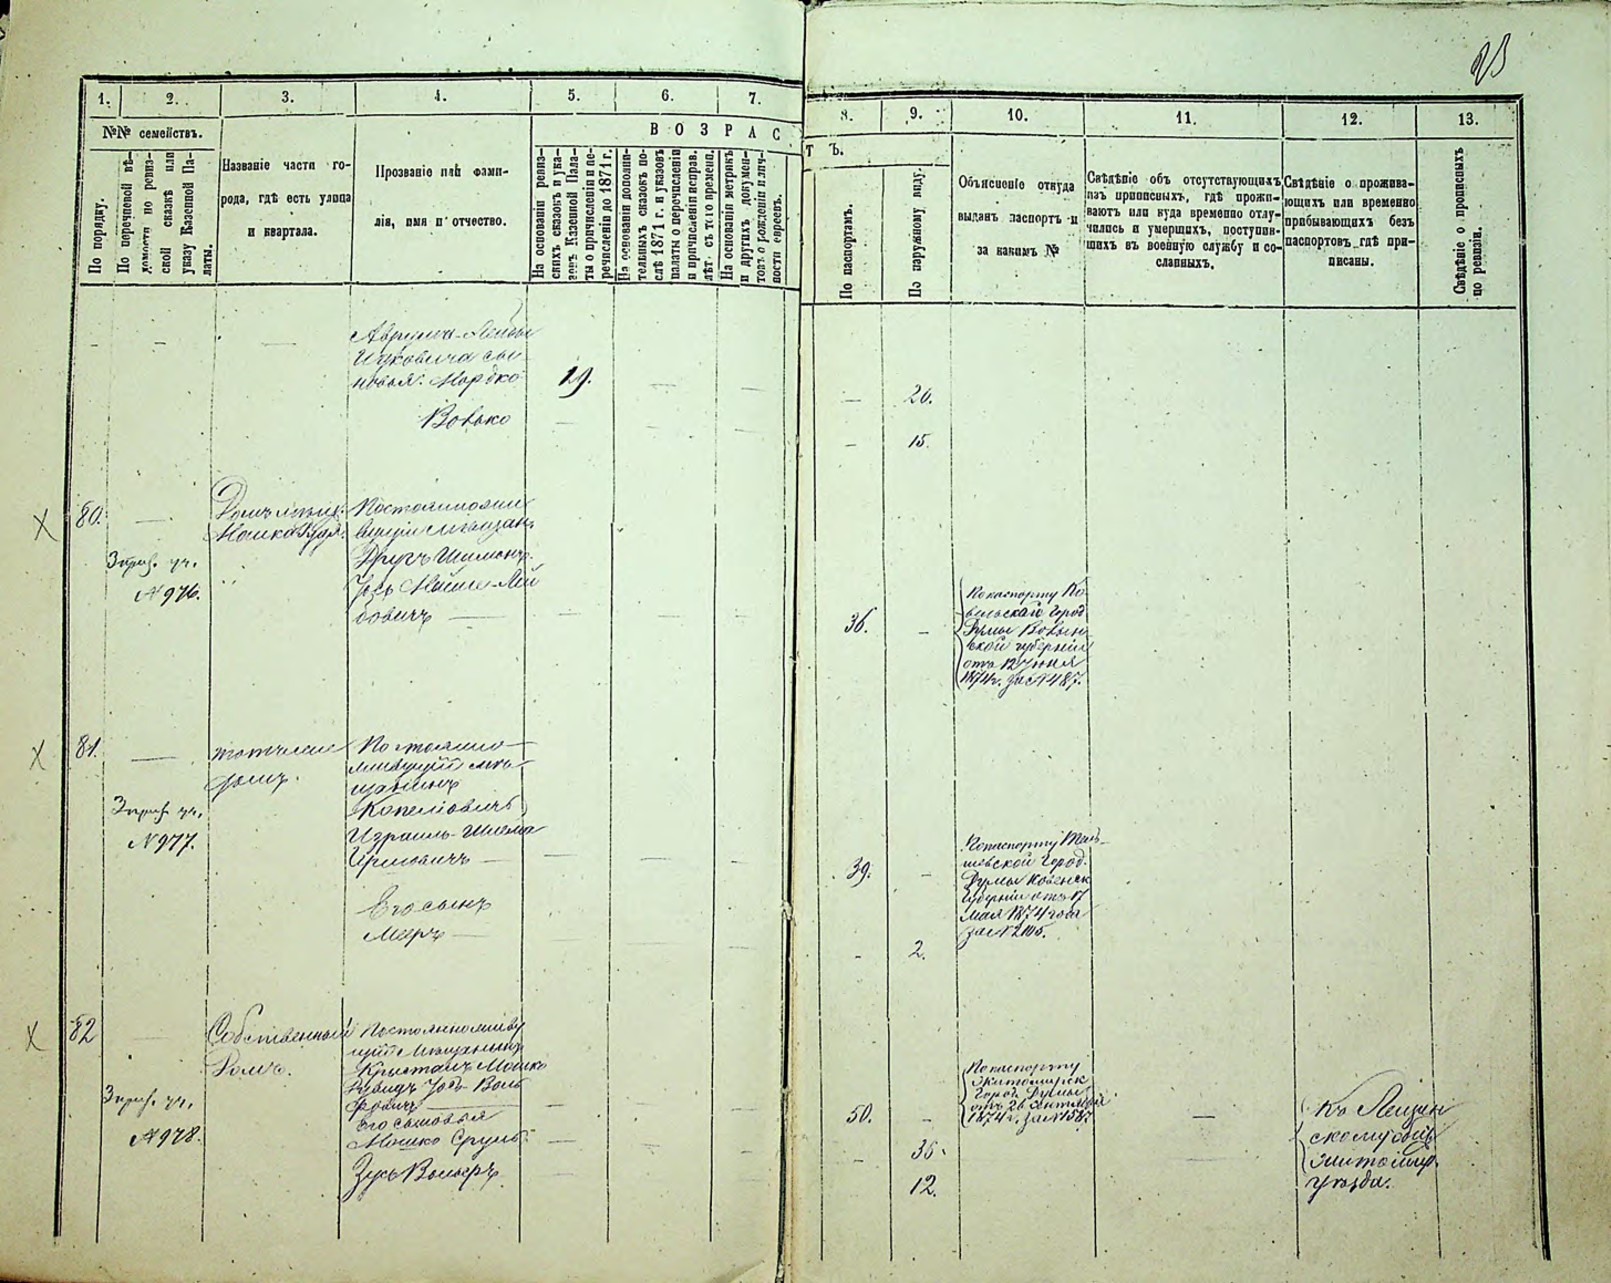 23
1. 2. 3. 4. 5. 6. 7.
8. 9. 10. 11. 12. 13.
№№ семействъ.
ВОЗРАС
ТЪ.
По порядку.
По перечневой вѣ-
домости по ревиз-
ской сказкѣ или
указу Казенной Па-
латы.
Названіе части го-
рода, гдѣ есть улица
и квартала.
Прозваніе или фами-
лія, имя и отчество.
На основаніи ревиз-
скихъ сказокъ и ука-
зовъ Казенной Пала-
ты о причисленіи и пе-
речисленіи до 1871 г.
На основаніи дополни-
тельныхъ сказокъ по-
слѣ 1871 г. и указовъ
палаты о перечисленіи
и причисленіи неправ.
лѣтъ съ того времени.
На основаніи метрикъ
и другихъ докумен-
товъ рожденія и лич-
ности евреевъ.
По паспортамъ.
По наружному виду.
Объясненіе откуда
выданъ паспортъ и
за какимъ №
Свѣдѣніе объ отсутствующихъ
изъ приписныхъ, гдѣ прожи-
ваютъ или куда временно отлу-
чились и умершихъ, поступив-
шихъ въ военную службу и со-
сланныхъ.
Свѣдѣніе о прожива-
ющихъ или временно
прибывающихъ безъ
паспортовъ гдѣ при-
писаны.
Свѣдѣніе о прописныхъ
по ревизіи.
Аврума-Лейбы
Ицковича сы-
новья: Мордко 19. 20.
Вовько 15.
80.
№ 976.
Постоянножи
вущій мѣщан.
Друхъ Шимонъ-
Іосъ Мойше-Лей
бовичъ 36.
По паспорту Ко
вельской Город
Думы Волын
ской губерніи
отъ 12 Іюня
1874 г. за № 487.
81.
тотъ же
домъ.
№ 977.
Постоянно-
живущій мѣ-
щанинъ
Копеліовичъ
Израиль-Шлема
39.
По паспорту Тель-
шевской Город.
Думы Ковенск
Губерніи отъ 17
Мая 1874 года
за № 2105.
Его сынъ
Мееръ 2.
82
Собственный
Домъ.
№ 978.
Постоянноживу
щій Мѣщанинъ
Кристалъ Мошко
Давидъ Іось-Воль
фовичъ 50.
По паспорту
Житомирск
Город. Думы
отъ 26 Сентября
1874 г. за № 1587
Его сыновья
Мошко Сруль 36.
Зусь Вольфъ 12.
скому общ
Житомир.
уѣзда.